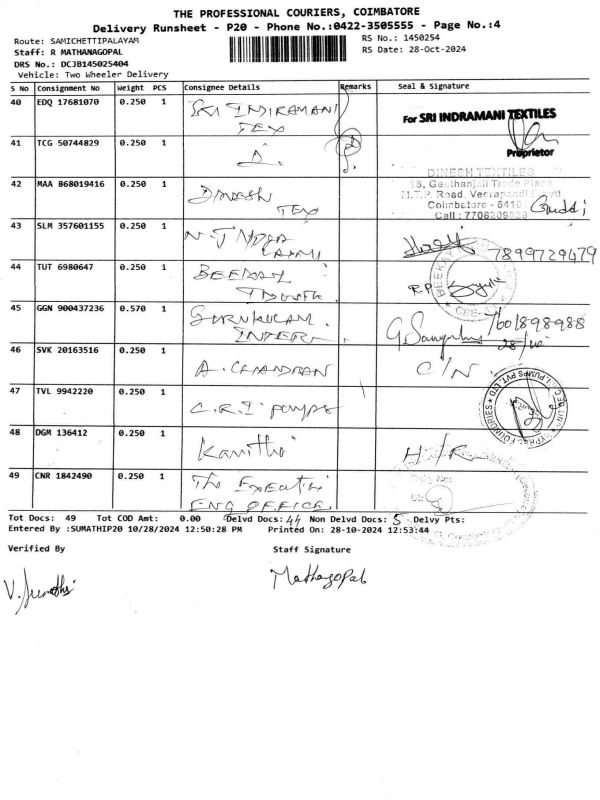 THE PROFESSIONAL COURIERS, COIMBATORE
Delivery Runsheet - P20 - Phone No.:0422-3505555 - Page No.:4
Route: SAMICHETTIPALAYAM
RS No.: 1450254
Staff: R MATHANAGOPAL
RS Date: 28-Oct-2024
DRS No.: DCJB145025404
Vehicle: Two Wheeler Delivery
S No Consignment No Weight PCS Consignee Details Remarks Seal & Signature
40 EDQ 17681070 0.250 1 SRI INDIRAMANI
TEX
For SRI INDRAMANI TEXTILES
Proprietor
41 TCG 50744829 0.250 1
DINESH TEXTILES
42 MAA 868019416 0.250 1 DINESH
TEX
Coimbatore - 6410
Call : 7708209828
43 SLM 357601155 0.250 1
7899729479
44 TUT 6980647 0.250 1
45 GGN 900437236 0.570 1 GURUKULAM
7601898988
28/10
46 SVK 20163516 0.250 1 A. CHANDRAN C/N
47 TVL 9942220 0.250 1 C.R.I PUMPS
48 DGM 136412 0.250 1 Kavitha H/R
49 CNR 1842490 0.250 1 The
ENG OFFICE
Tot Docs: 49 Tot COD Amt: 0.00 Delvd Docs: 44 Non Delvd Docs: 5 Delvy Pts:
Entered By :SUMATHIP20 10/28/2024 12:50:28 PM Printed On: 28-10-2024 12:53:44
Verified By Staff Signature
Mathagopal